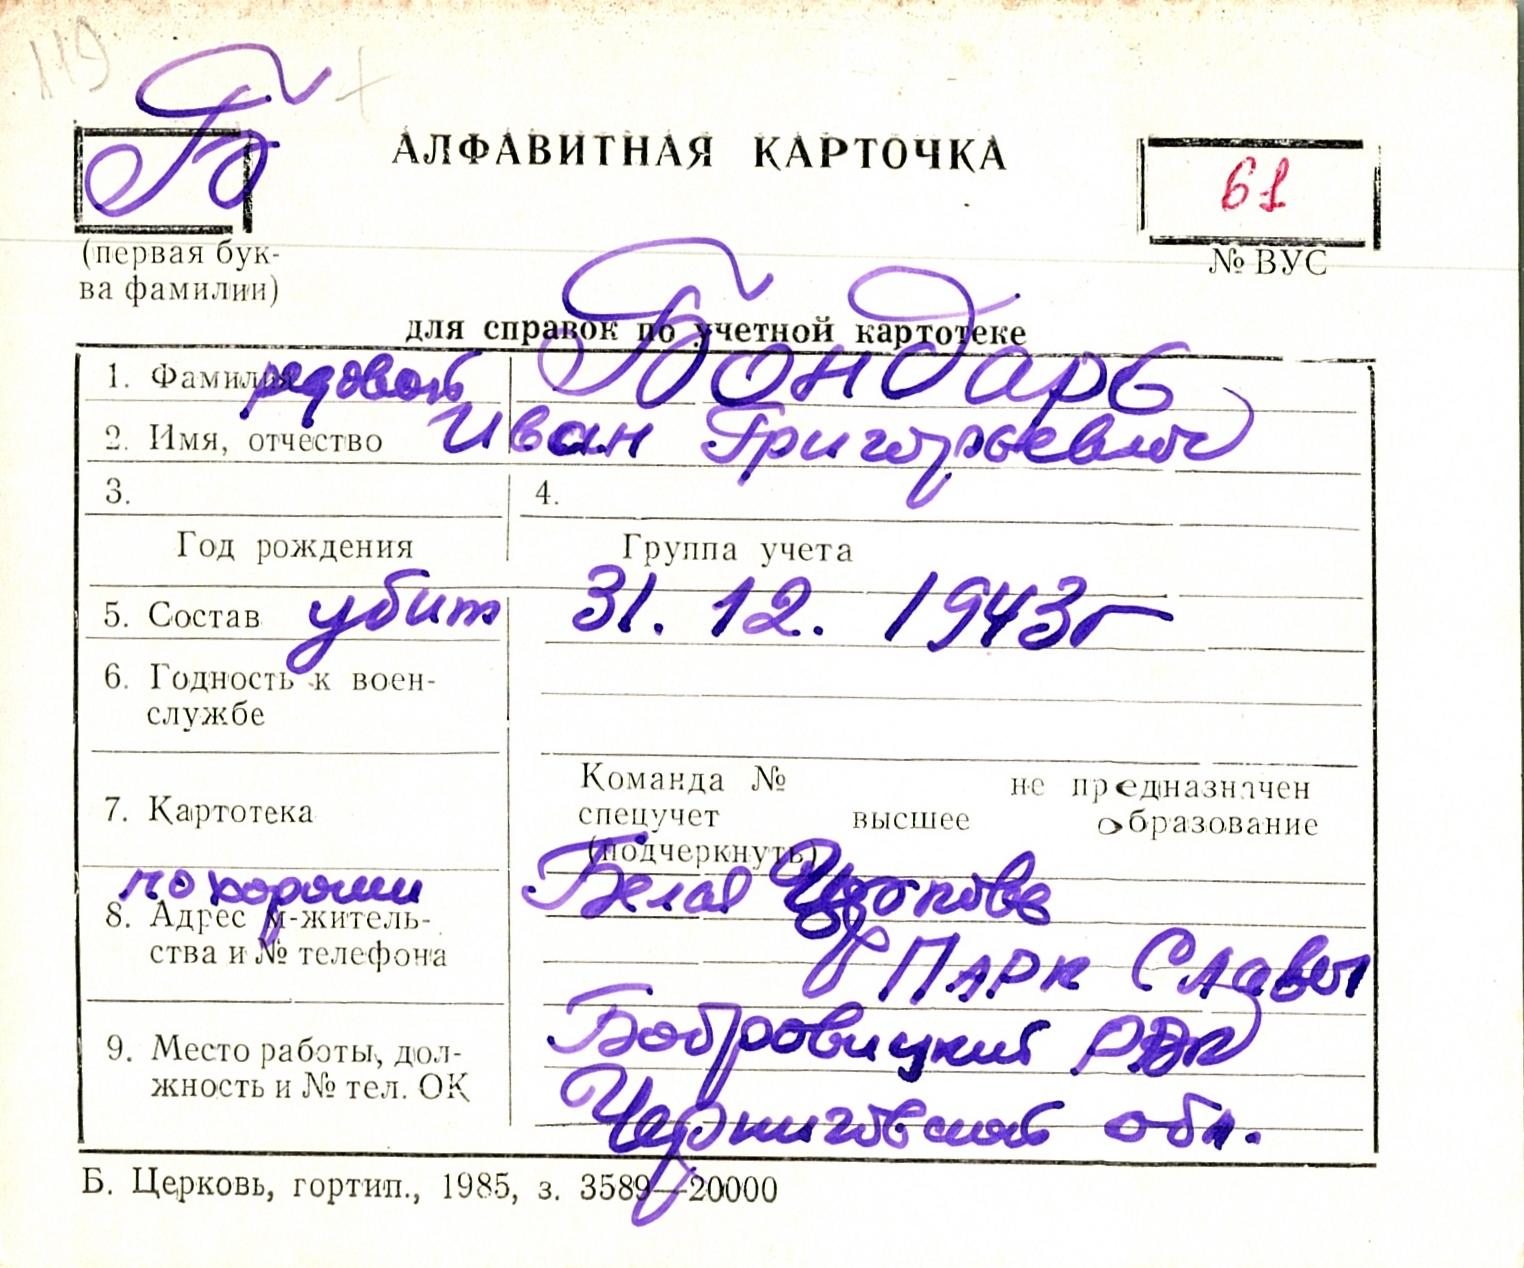 119
Б
АЛФАВИТНАЯ КАРТОЧКА
61
(первая бук-
ва фамилии)
№ ВУС
для справок по учетной картотеке
1. Фамилия рядовой Бондарь
2. Имя, отчество Иван Григорьевич
3. 4.
Год рождения Группа учета
5. Состав убит 31. 12. 1943г
6. Годность к воен-
службе
Команда № не предназначен
7. Картотека спецучет высшее образование
(подчеркнуть)
похорошен Белая Церковь
8. Адрес м-житель-
ства и № телефона Парк Славы
Бобровицкий РВК
9. Место работы, дол-
жность и № тел. ОК Черниговской обл.
Б. Церковь, гортип., 1985, з. 3589—20000